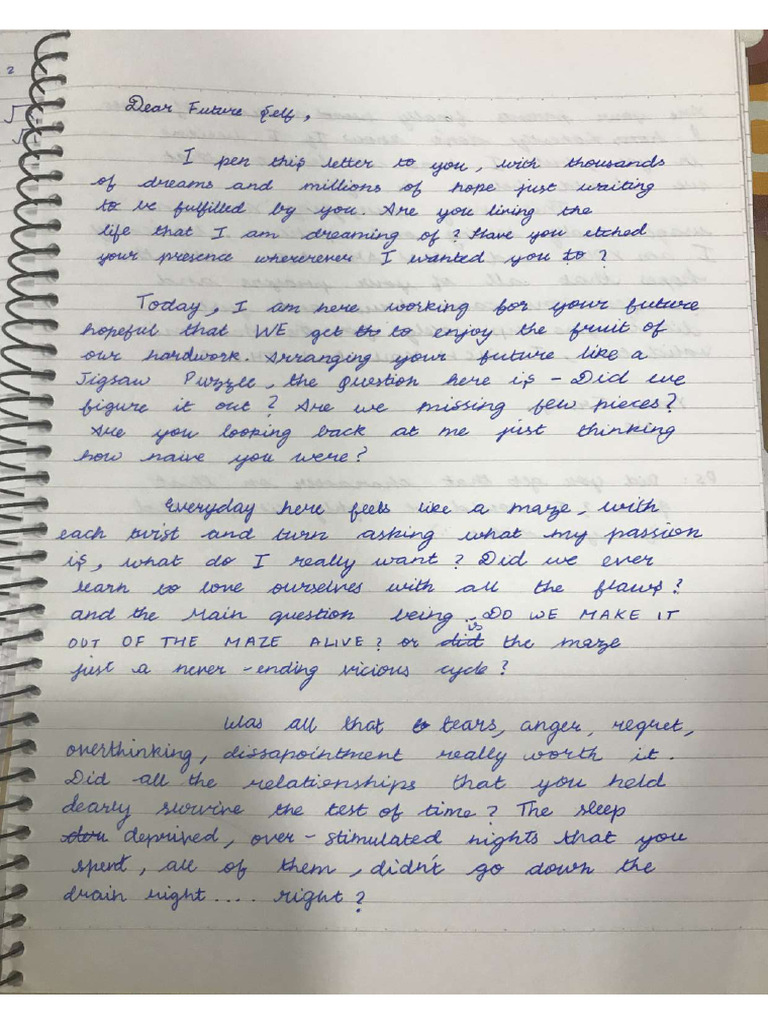 Dear Future Self,
I pen this letter to you, with thousands
of dreams and millions of hope just waiting
to be fulfilled by you. Are you living the
life that I am dreaming of? Have you etched
your presence whereverever I wanted you to?
Today, I am here working for your future
hopeful that WE get to enjoy the fruit of
our hardwork. Arranging your future, like a
Jigsaw Puzzle, the question here is - Did we
figure it out? Are we missing few pieces?
Are you looking back at me just thinking
how naive you were?
Everyday here feels like a maze, with
each twist and turn asking what my passion
is, what do I really want? Did we ever
learn to love ourselves with all the flaws?
and the Main question being - DO WE MAKE IT
OUT OF THE MAZE ALIVE? or is the maze
just a never-ending vicious cycle?
Was all that tears, anger, regret,
overthinking, dissapointment really worth it.
Did all the relationships that you held
dearly survive the test of time? The sleep
deprived, over-stimulated nights that you
spent, all of them, didn't go down the
drain right.... right?